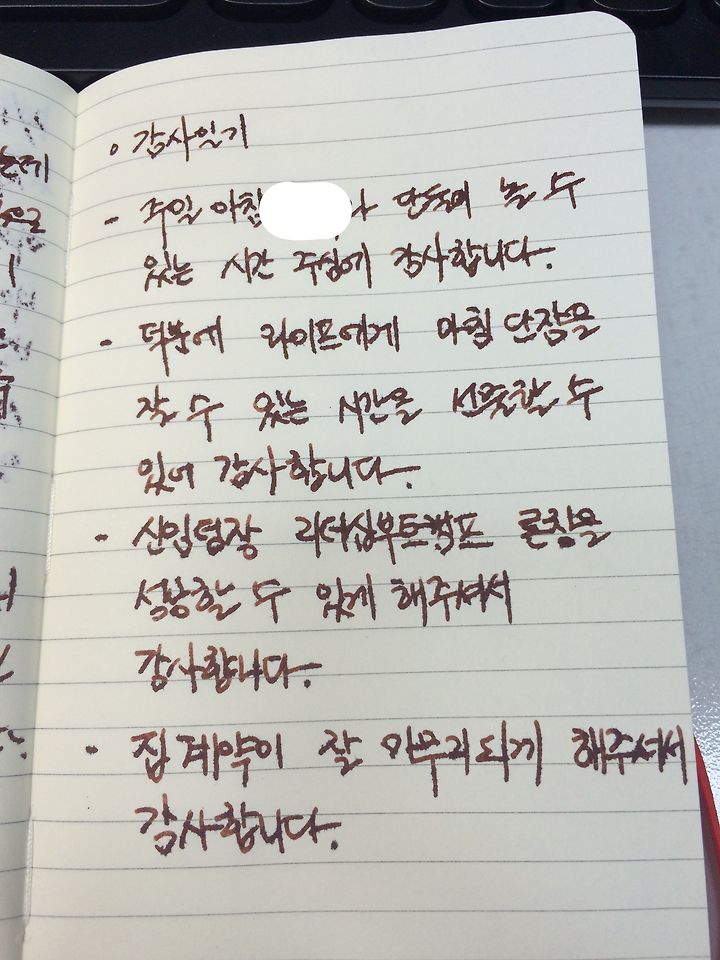 ○ 감사일기
- 주일 아침 단둘이 놀 수
있는 시간 주심에 감사합니다.
- 덕분에 와이프에게 아침 단잠을
잘 수 있는 시간을 선물할 수
있어 감사합니다.
- 신임팀장 리더십부트캠프 론칭을
성공할 수 있게 해주셔서
감사합니다.
- 집 계약이 잘 마무리되게 해주셔서
감사합니다.